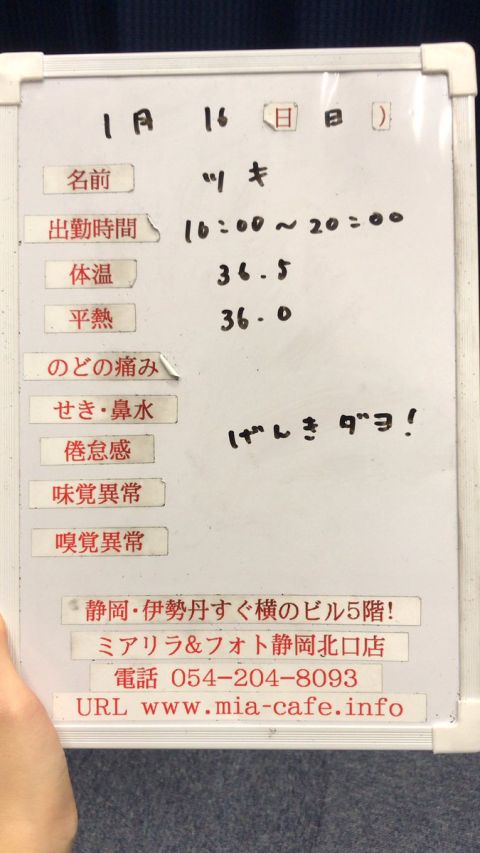 1月 16 日 日 )
名前 ツキ
出勤時間 16:00~20:00
体温 36.5
平熱 36.0
のどの痛み
せき・鼻水
げんきダヨ!
倦怠感
味覚異常
嗅覚異常
静岡・伊勢丹すぐ横のビル5階!
ミアリラ&フォト静岡北口店
電話 054-204-8093
URL www.mia-cafe.info